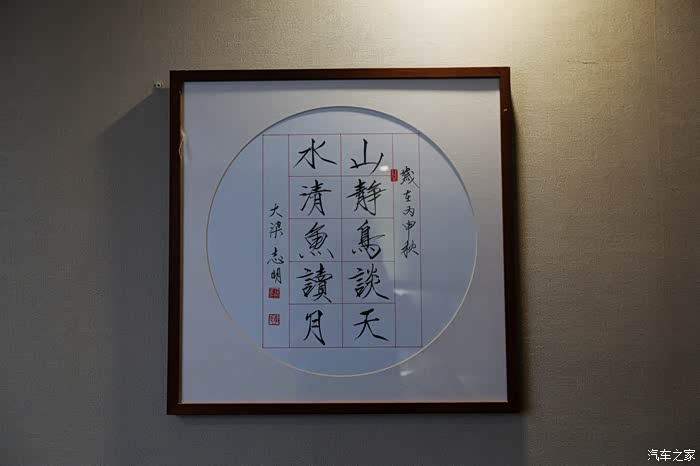 歲在丙申秋
山靜鳥談天
水清魚讀月
大梁志明
汽车之家